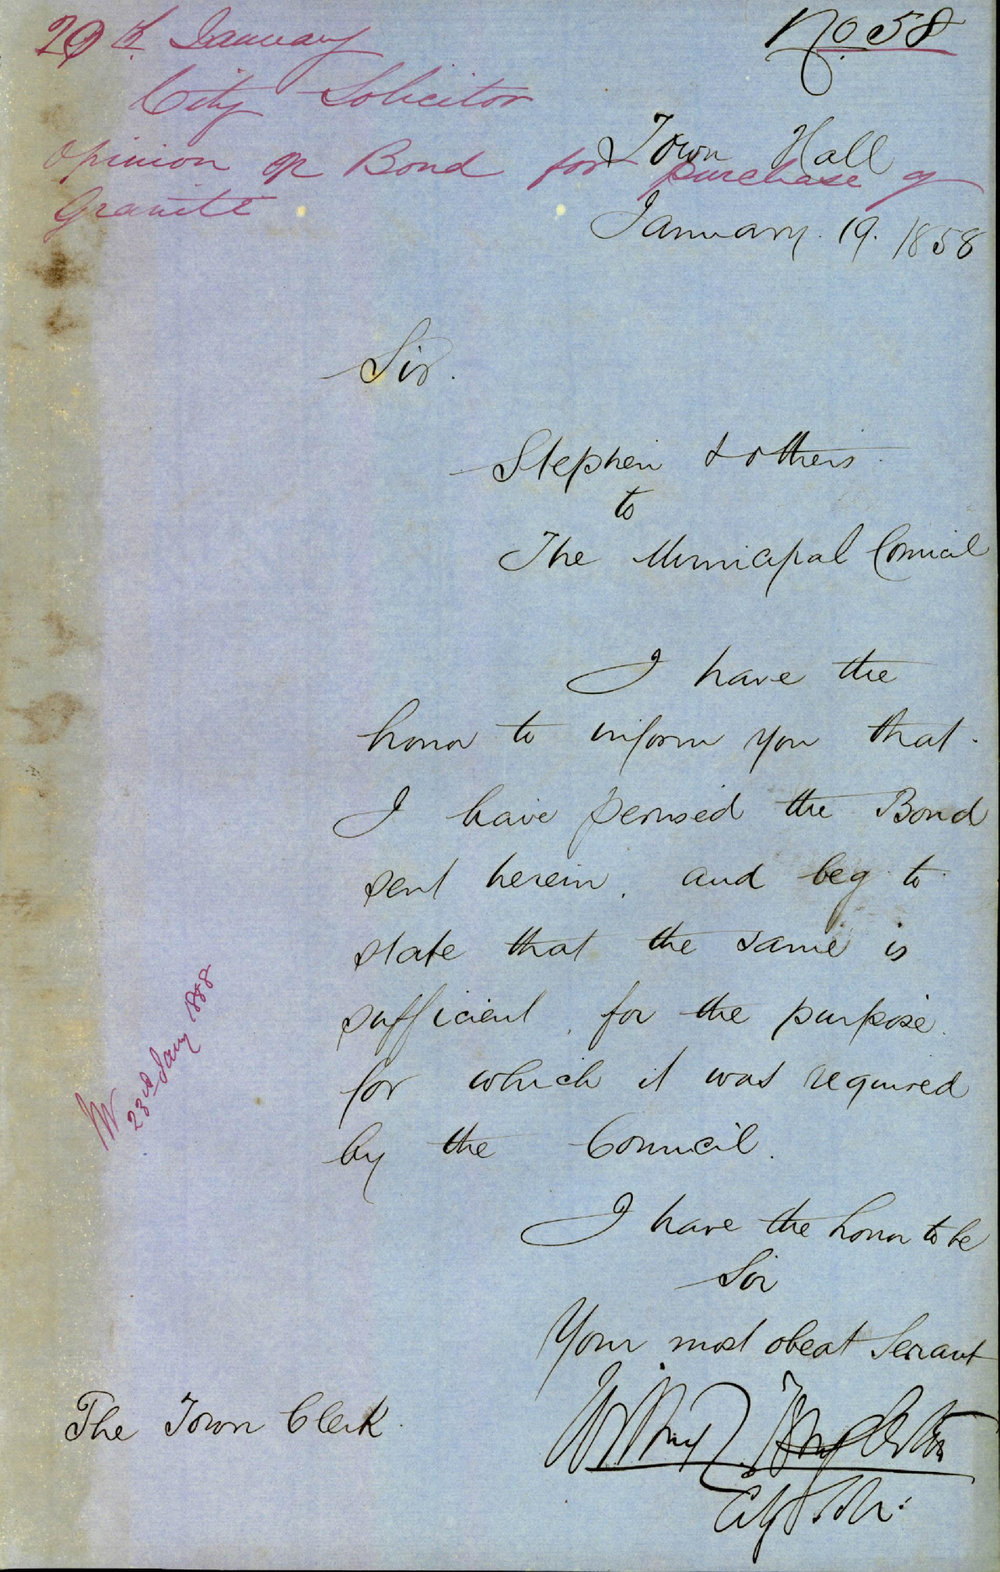 No 58
20th January
City Solicitor
Opinion on Bond for purchase of
Granite
Town Hall
January. 19. 1858
Sir.
Stephen & others
to
The Municipal Council
I have the
honor to inform you that
I have perused the Bond
sent herein. and beg to
state that the same is
sufficient for the purpose
for which it was required
by the Council.
I have the honor to be
Sir
Your most obedt Servant
City Solr.
The Town Clerk.
23rd Jany 1858